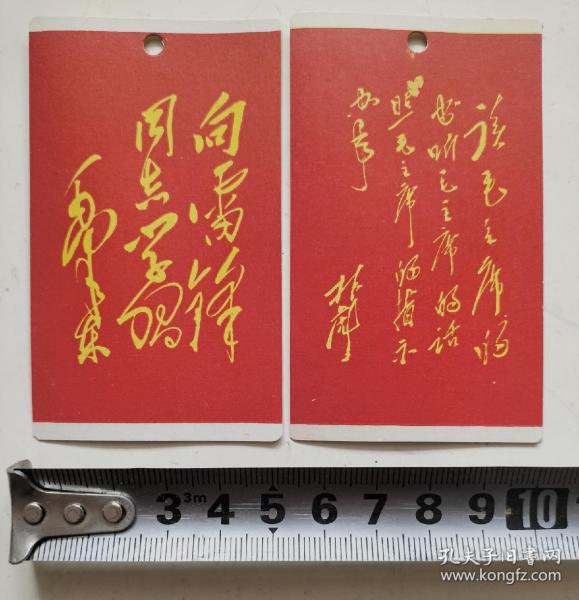 向雷锋
同志学习
毛泽东
读毛主席的
书听毛主席的话
照毛主席的指示
办事
林彪
3 3m 4 5 6 7 8 9 10
孔夫子旧书网
www.kongfz.com